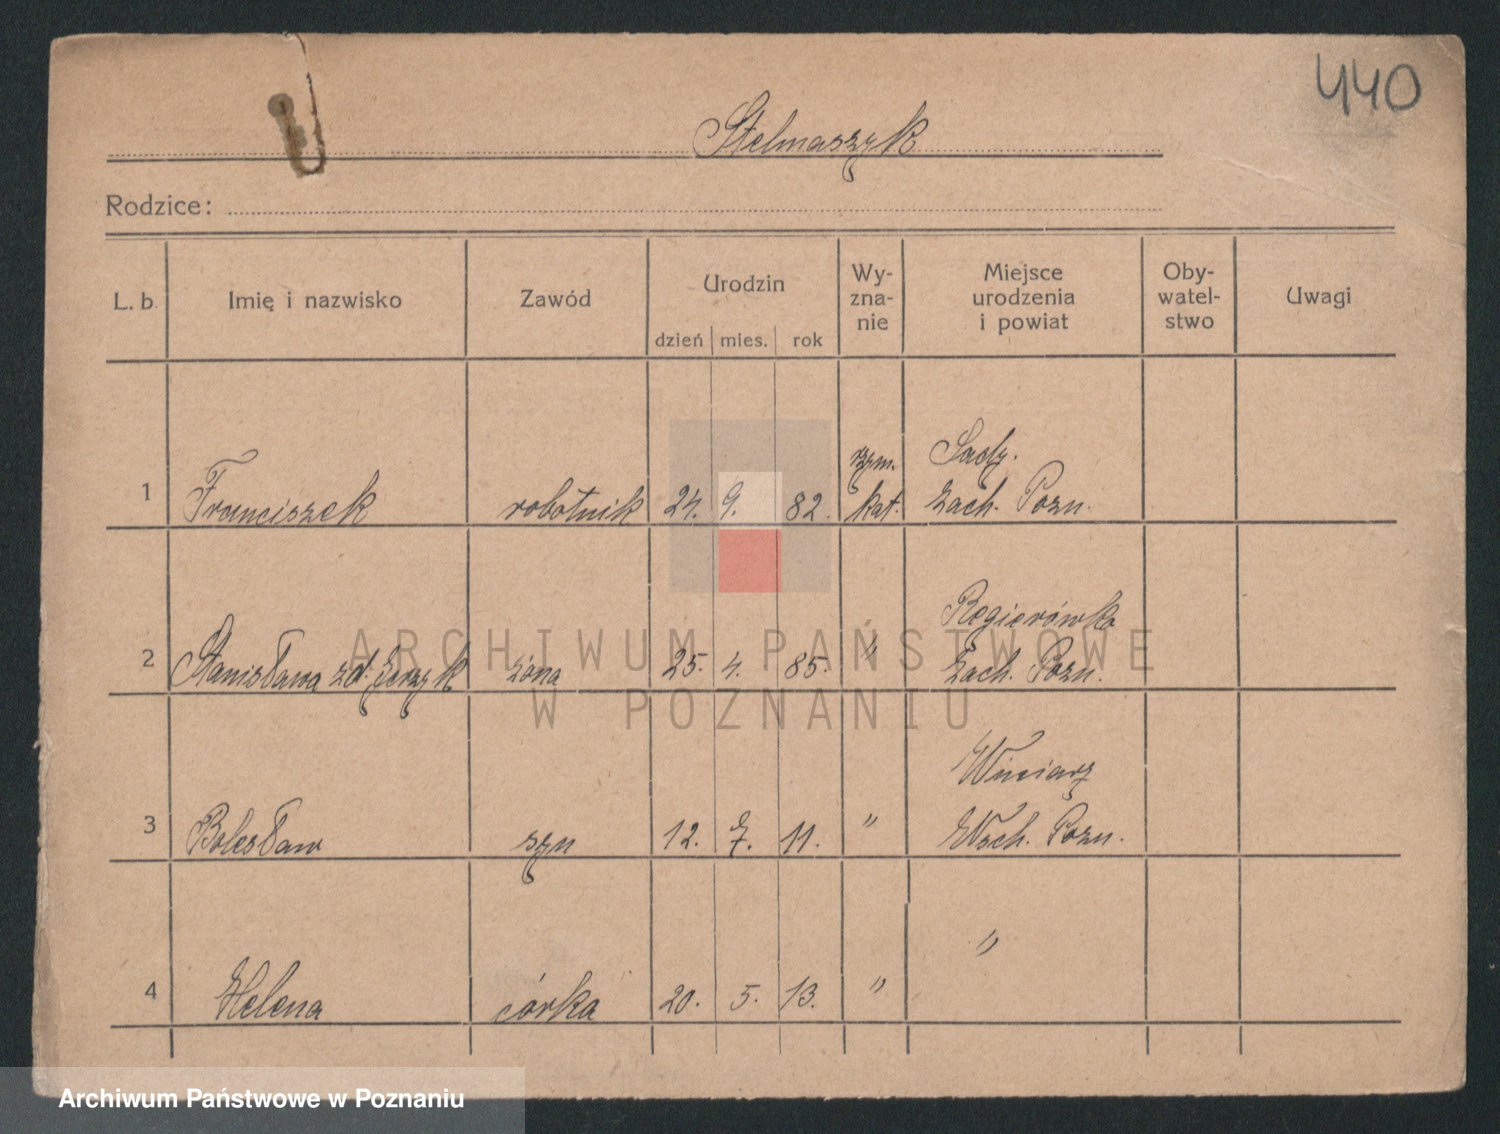 440
Stelmaszyk
Rodzice:
L. b. Imię i nazwisko Zawód Urodzin dzień mies. rok Wy-zna-nie Miejsce urodzenia i powiat Oby-watel-stwo Uwagi
Sady.
rzym.
1 Franciszek robotnik 24. 9. 82. kat. Zach. Pozn.
Regierówko
2 Stanisława zd. Jerzyk żona 25. 4. 85. " Zach. Pozn.
Winiary
3 Bolesław syn 12. 7. 11. " Wsch. Pozn.
"
4 Helena córka 20. 5. 13. "
ARCHIWUM PAŃSTWOWE
W POZNANIU
Archiwum Państwowe w Poznaniu